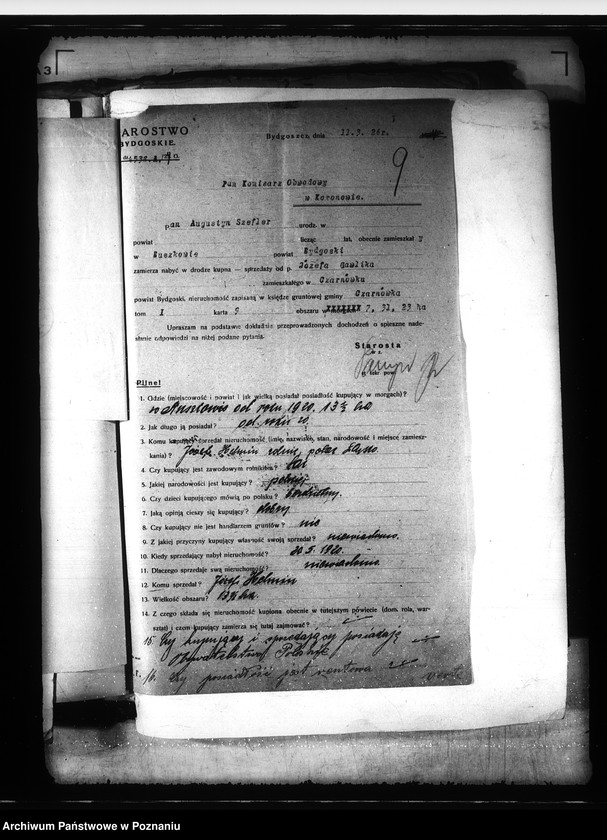 9
AROSTWO
BYDGOSKIE.
Bydgoszcz, dnia 11.3. 26r.
Pan Komisarz Obwodowy
w Koronowie.
pan Augustyn Szefler urodz. w
powiat licząc lat, obecnie zamieszkał y
w Buszkowie powiat Bydgoski
zamierza nabyć w drodze kupna — sprzedaży od p. Józefa Gawlika
zamieszkałego w Czarnówku
powiat Bydgoski, nieruchomość zapisaną w księdze gruntowej gminy Czarnówka
tom I karta 9 obszaru w 7, 31, 23 ha
Upraszam na podstawie dokładnie przeprowadzonych dochodzeń o spieszne nade-
słanie odpowiedzi na niżej podane pytania.
Starosta
Pilne!
1. Gdzie (miejscowość i powiat i jak wielką posiadał posiadłość kupujący w morgach)?
w Buszkowie od roku 1920. 13 ½ ha
2. Jak długo ją posiadał? od roku 20.
3. Komu kupujący sprzedał nieruchomość (imię, nazwisko, stan, narodowość i miejsce zamiesz-
kania)? Józef Helmin
4. Czy kupujący jest zawodowym rolnikiem? tak
5. Jakiej narodowości jest kupujący? polskiej
6. Czy dzieci kupującego mówią po polsku? bezdzietny.
7. Jaką opinją cieszy się kupujący? dobrą
8. Czy kupujący nie jest handlarzem gruntów? nie
9. Z jakiej przyczyny kupujący własność swoją sprzedał? niewiadomo.
10. Kiedy sprzedający nabył nieruchomość? 20.5.1920.
11. Dlaczego sprzedaje swą nieruchomość? niewiadomo
12. Komu sprzedał? Józef Helmin
13. Wielkość obszaru? 13½ ha.
14. Z czego składa się nieruchomość kupiona obecnie w tutejszym powiecie (dom, rola, war-
sztat) i czem kupujący zamierza się tutaj zajmować?
15. Czy kupujący i sprzedający posiadają
Obywatelstwo Polskie
16. Czy posiadłość jest rentowa
verte
Archiwum Państwowe w Poznaniu